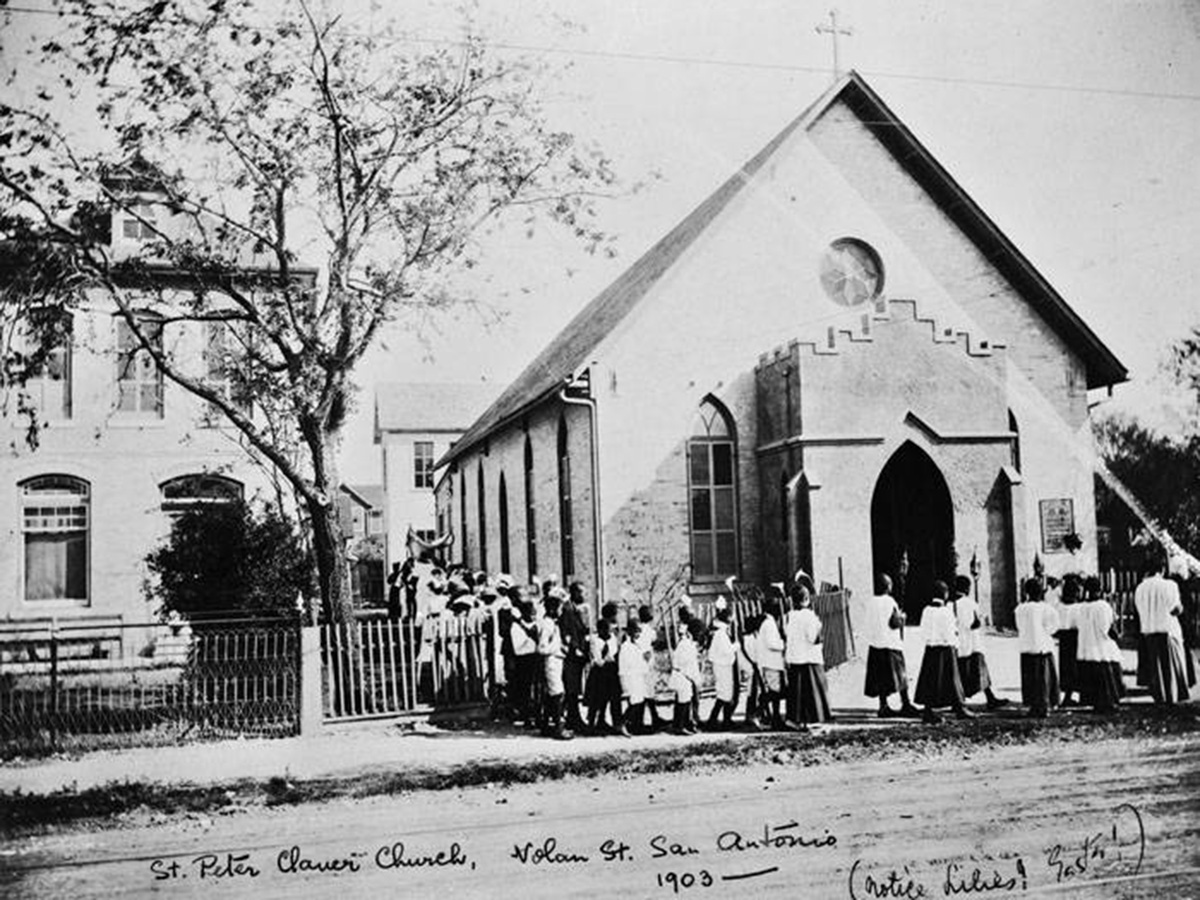 St. Peter Claver Church, Nolan St. San Antonio
1903 —
(notice Lilies!